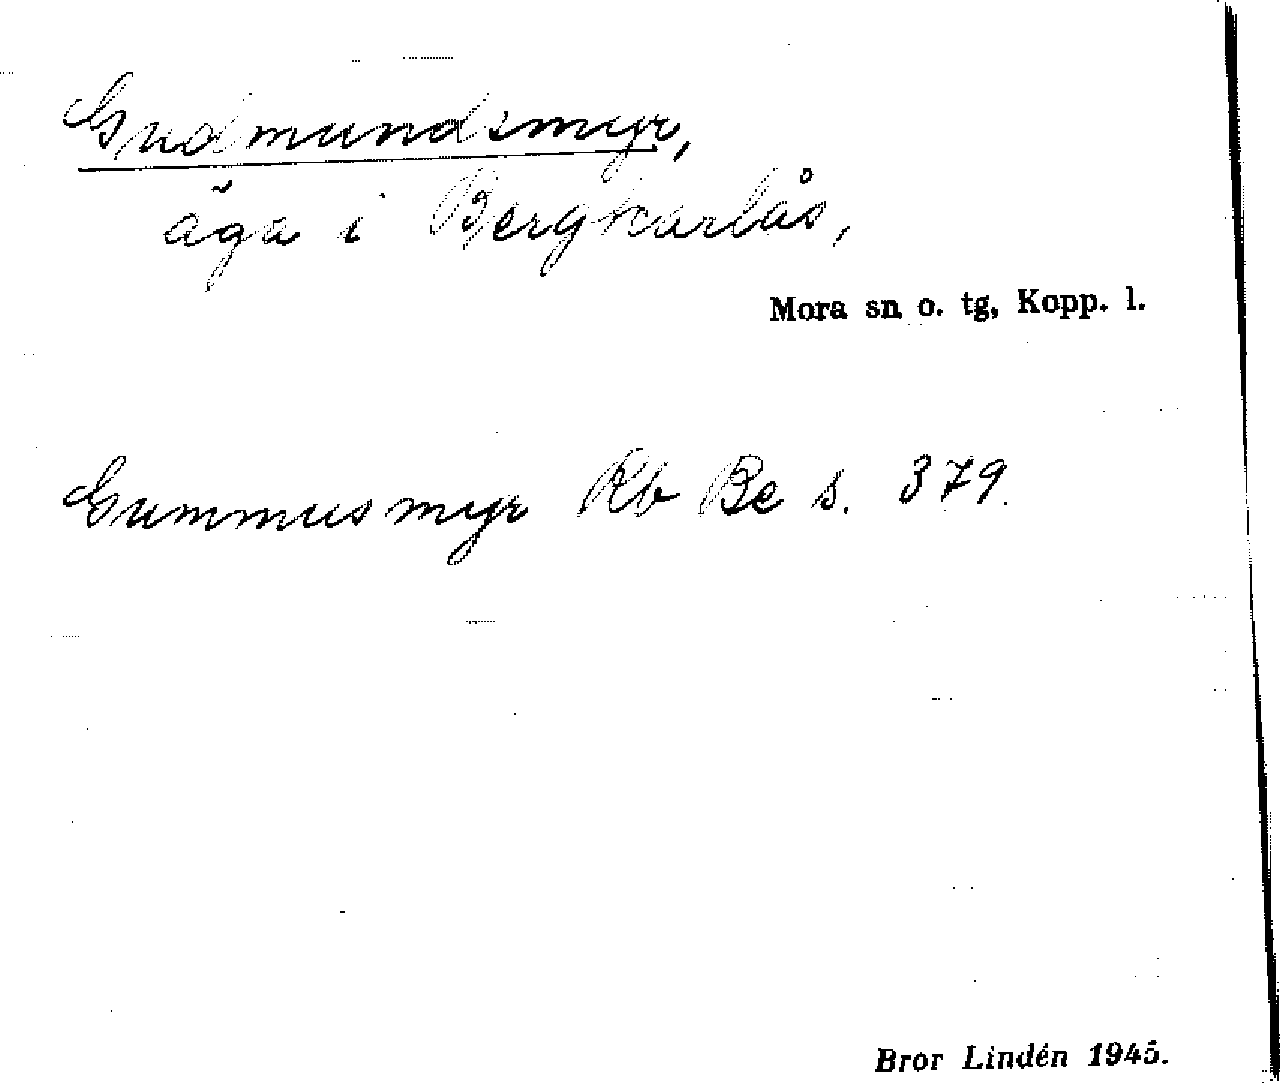 Gudmundsmyr,
äga i Bergkarlås,
Mora sn o. tg, Kopp. l.
Gummusmyr Rb Be s. 379.
Bror Lindén 1945.